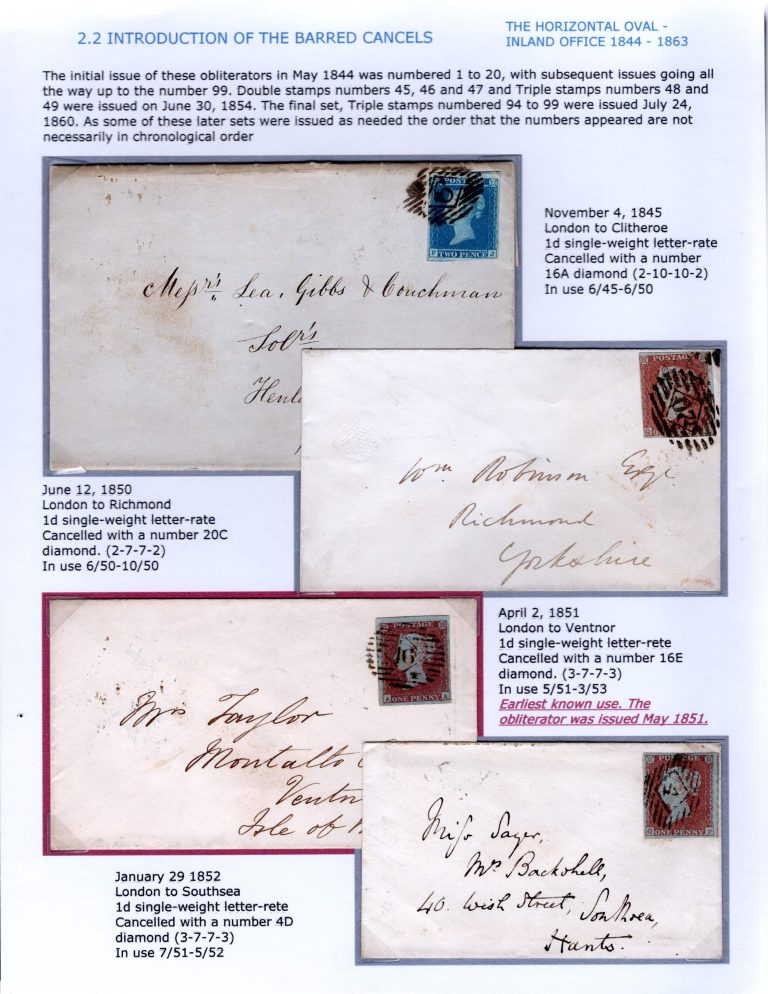 2.2 INTRODUCTION OF THE BARRED CANCELS
THE HORIZONTAL OVAL -
INLAND OFFICE 1844 - 1863
The initial issue of these obliterators in May 1844 was numbered 1 to 20, with subsequent issues going all
the way up to the number 99. Double stamps numbers 45, 46 and 47 and Triple stamps numbers 48 and
49 were issued on June 30, 1854. The final set, Triple stamps numbered 94 to 99 were issued July 24,
1860. As some of these later sets were issued as needed the order that the numbers appeared are not
necessarily in chronological order
POST
TWO PENCE
Messrs Lea, Gibbs & Couchman
Solrs
Henl
November 4, 1845
London to Clitheroe
1d single-weight letter-rate
Cancelled with a number
16A diamond (2-10-10-2)
In use 6/45-6/50
POSTAGE
Wm Robinson Esqr
Richmond
Yorkshire
June 12, 1850
London to Richmond
1d single-weight letter-rate
Cancelled with a number 20C
diamond. (2-7-7-2)
In use 6/50-10/50
POSTAGE
16
A ONE PENNY A
Mrs Taylor
Montalto
Ventn
Isle of
April 2, 1851
London to Ventnor
1d single-weight letter-rete
Cancelled with a number 16E
diamond. (3-7-7-3)
In use 5/51-3/53
Earliest known use. The
obliterator was issued May 1851.
POSTAGE
ONE PENNY
Miss Sayer,
Mrs Backshell,
40. Wish Street, Southsea,
Hants.
January 29 1852
London to Southsea
1d single-weight letter-rete
Cancelled with a number 4D
diamond (3-7-7-3)
In use 7/51-5/52